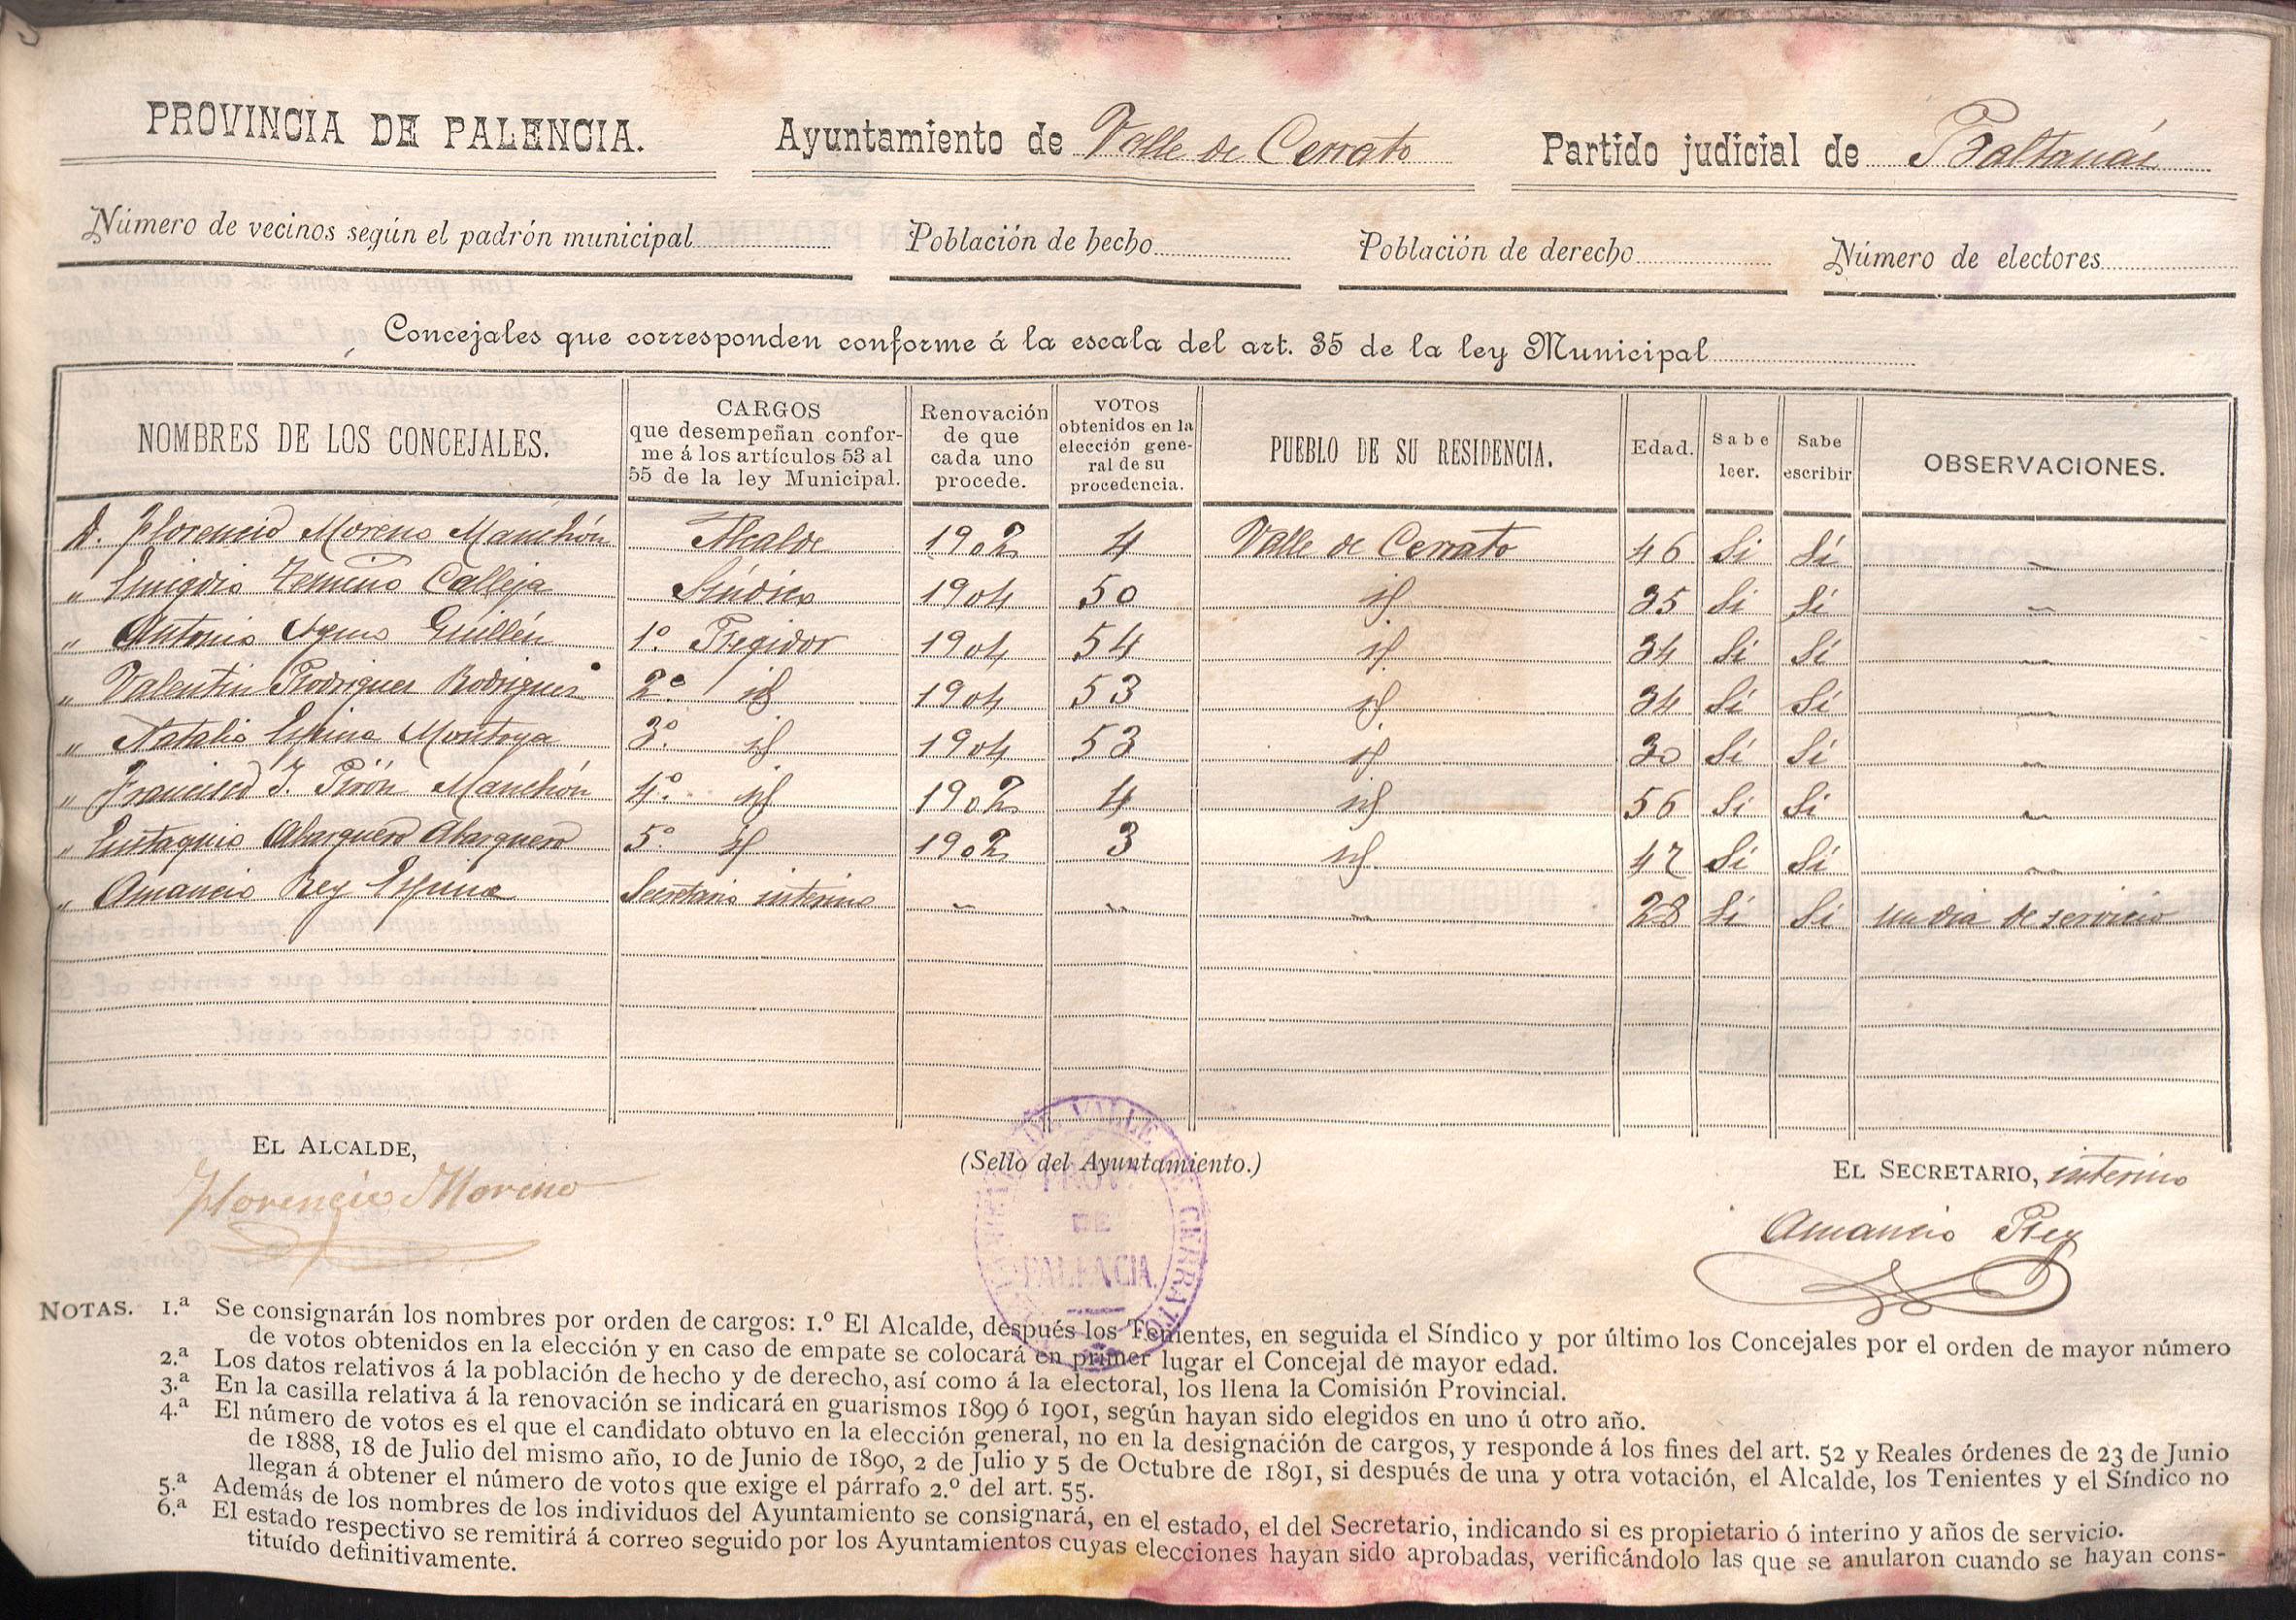 PROVINCIA DE PALENCIA. Ayuntamiento de Valle de Cerrato Partido judicial de Baltanás
Número de vecinos según el padrón municipal Población de hecho Población de derecho Número de electores
Concejales que corresponden conforme á la escala del art. 35 de la ley Municipal
NOMBRES DE LOS CONCEJALES. CARGOS que desempeñan conforme á los artículos 53 al 55 de la ley Municipal. Renovación de que cada uno procede. VOTOS obtenidos en la elección general de su procedencia. PUEBLO DE SU RESIDENCIA. Edad. Sabe leer. Sabe escribir OBSERVACIONES.
D. Florencio Moreno Manchón Alcalde 1902 4 Valle de Cerrato 46 Si Sí "
" Emigdio Temiño Calleja Síndico 1904 50 id 35 Si Sí "
" Antonio Guillén 1º Regidor 1904 54 id. 34 Sí Sí "
" Valentin Rodriguez Rodriguez 2º id 1904 53 id 34 Sí Sí "
" Natalio Espina Montoya 3º id 1904 53 id 30 Sí Sí "
" Francisco J. Pirón Manchón 4º id 1902 4 id 56 Sí Sí "
" Eustaquio Abarquero Abarquero 5º id 1902 3 id. 47 Sí Sí "
" Amancio Rey Espina Secretario interino " " " 28 Sí Sí un dia de servicio
EL ALCALDE, (Sello del Ayuntamiento.) EL SECRETARIO, interino
Florencio Moreno Amancio Rey
DE VALLE DE CERRATO
PROV.
DE
PALENCIA
NOTAS. 1.ª Se consignarán los nombres por orden de cargos: 1.º El Alcalde, después los Tenientes, en seguida el Síndico y por último los Concejales por el orden de mayor número
de votos obtenidos en la elección y en caso de empate se colocará en primer lugar el Concejal de mayor edad.
2.ª Los datos relativos á la población de hecho y de derecho, así como á la electoral, los llena la Comisión Provincial.
3.ª En la casilla relativa á la renovación se indicará en guarismos 1899 ó 1901, según hayan sido elegidos en uno ú otro año.
4.ª El número de votos es el que el candidato obtuvo en la elección general, no en la designación de cargos, y responde á los fines del art. 52 y Reales órdenes de 23 de Junio
de 1888, 18 de Julio del mismo año, 10 de Junio de 1890, 2 de Julio y 5 de Octubre de 1891, si después de una y otra votación, el Alcalde, los Tenientes y el Síndico no
llegan á obtener el número de votos que exige el párrafo 2.º del art. 55.
5.ª Además de los nombres de los individuos del Ayuntamiento se consignará, en el estado, el del Secretario, indicando si es propietario ó interino y años de servicio.
6.ª El estado respectivo se remitirá á correo seguido por los Ayuntamientos cuyas elecciones hayan sido aprobadas, verificándolo las que se anularon cuando se hayan cons-
tituído definitivamente.